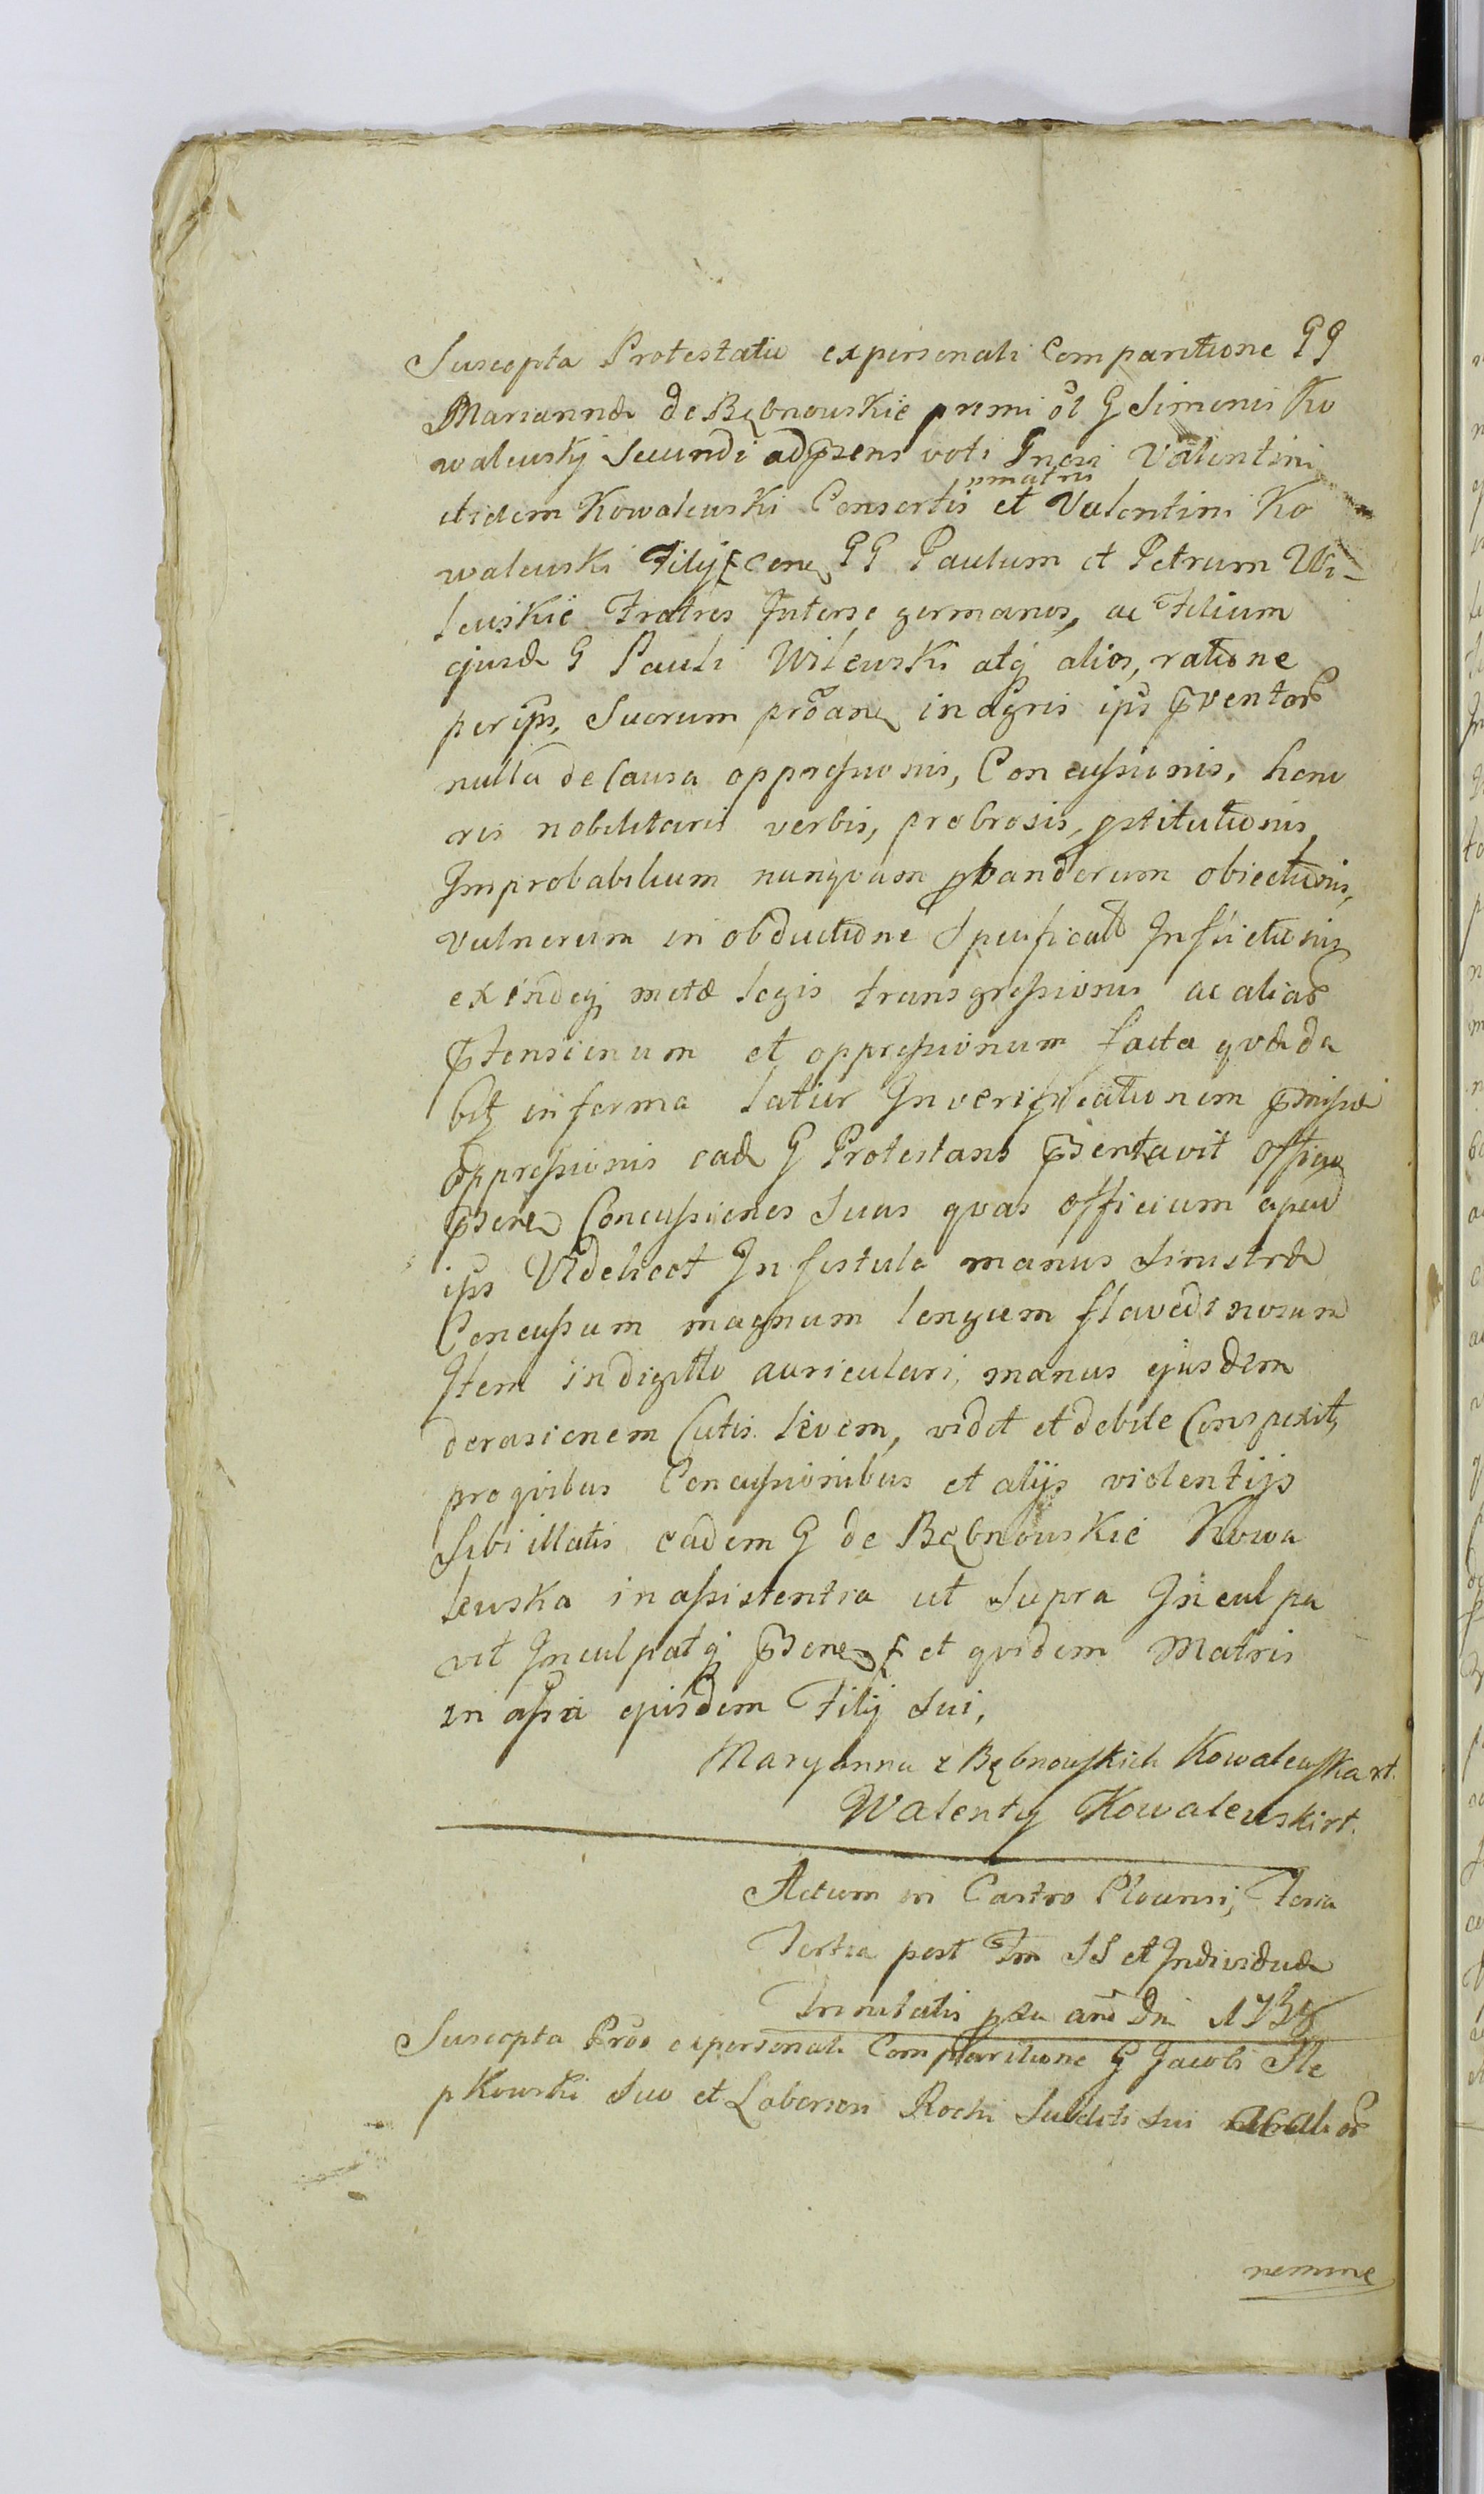 Suscepta Protestatio ex personali Comparitione GG
Mariannæ de Bębnowskie primi ol G Simonis Ko
walewskj Secundi ad præsens voti Gnosi Valentini
matris
itidem Kowalewski Consortis et Valentini Ko
walewski Filij Cone GG Paulum et Petrum Wi-
lewskie Fratres Interse germanos, ac Filium
ejusd G Pauli Wilewski atq alios, ratione
per ips, Suorum in agris ips prventor
nulla de Causa oppressionis, Concussionis, hono
ris nobilitaris verbis, probrosis, pstitutionis,
Improbabilium nunquam pbandorum obiectionis,
vulnerum in obductione Specificat Inflictionis
exindeq metæ legis transgressionis ac aliar
prtensionum et oppressionum facta qvæ da
bit in forma latior In verificationem prmissæ
oppressionis ead G Protestans prsentavit offo
prsen Concussiones Suas qvas officium apud
ips Videlicet In fistula manus Sinistræ
Concussum magnum longum flavedinosum
Item in digitto auriculari, manus ejusdem
derasionem Cutis levem, vidit et debite Conspexit,
pro qvibus Concussionibus et alijs violentijs
Sibi illatis eadem G de Bębnowskie Kowa
lewska in assistentia ut Supra Inculpa
vit Inculpatq prsen et qvidem Matris
in assa ejusdem Filij Sui,
Maryanna z Bębnowskich Kowalewska rt.
Walenty Kowalewski rt.
Actum in Castro Plocensi, Feria
Tertia post Fm SS et Individuæ
Trinitatis pxa ano Dni
Suscepta Pro ex personali Comparitione G Jacobi Ste
pkowski Suo et Laboriosi Rochi Subditi Sui
nomine